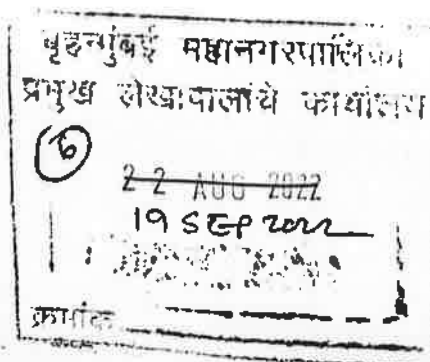 बृहन्मुंबई महानगरपालिका
प्रमुख लेखापालांचे कार्यालय
6
22 AUG 2022
19 SEP 2022
क्रमांक